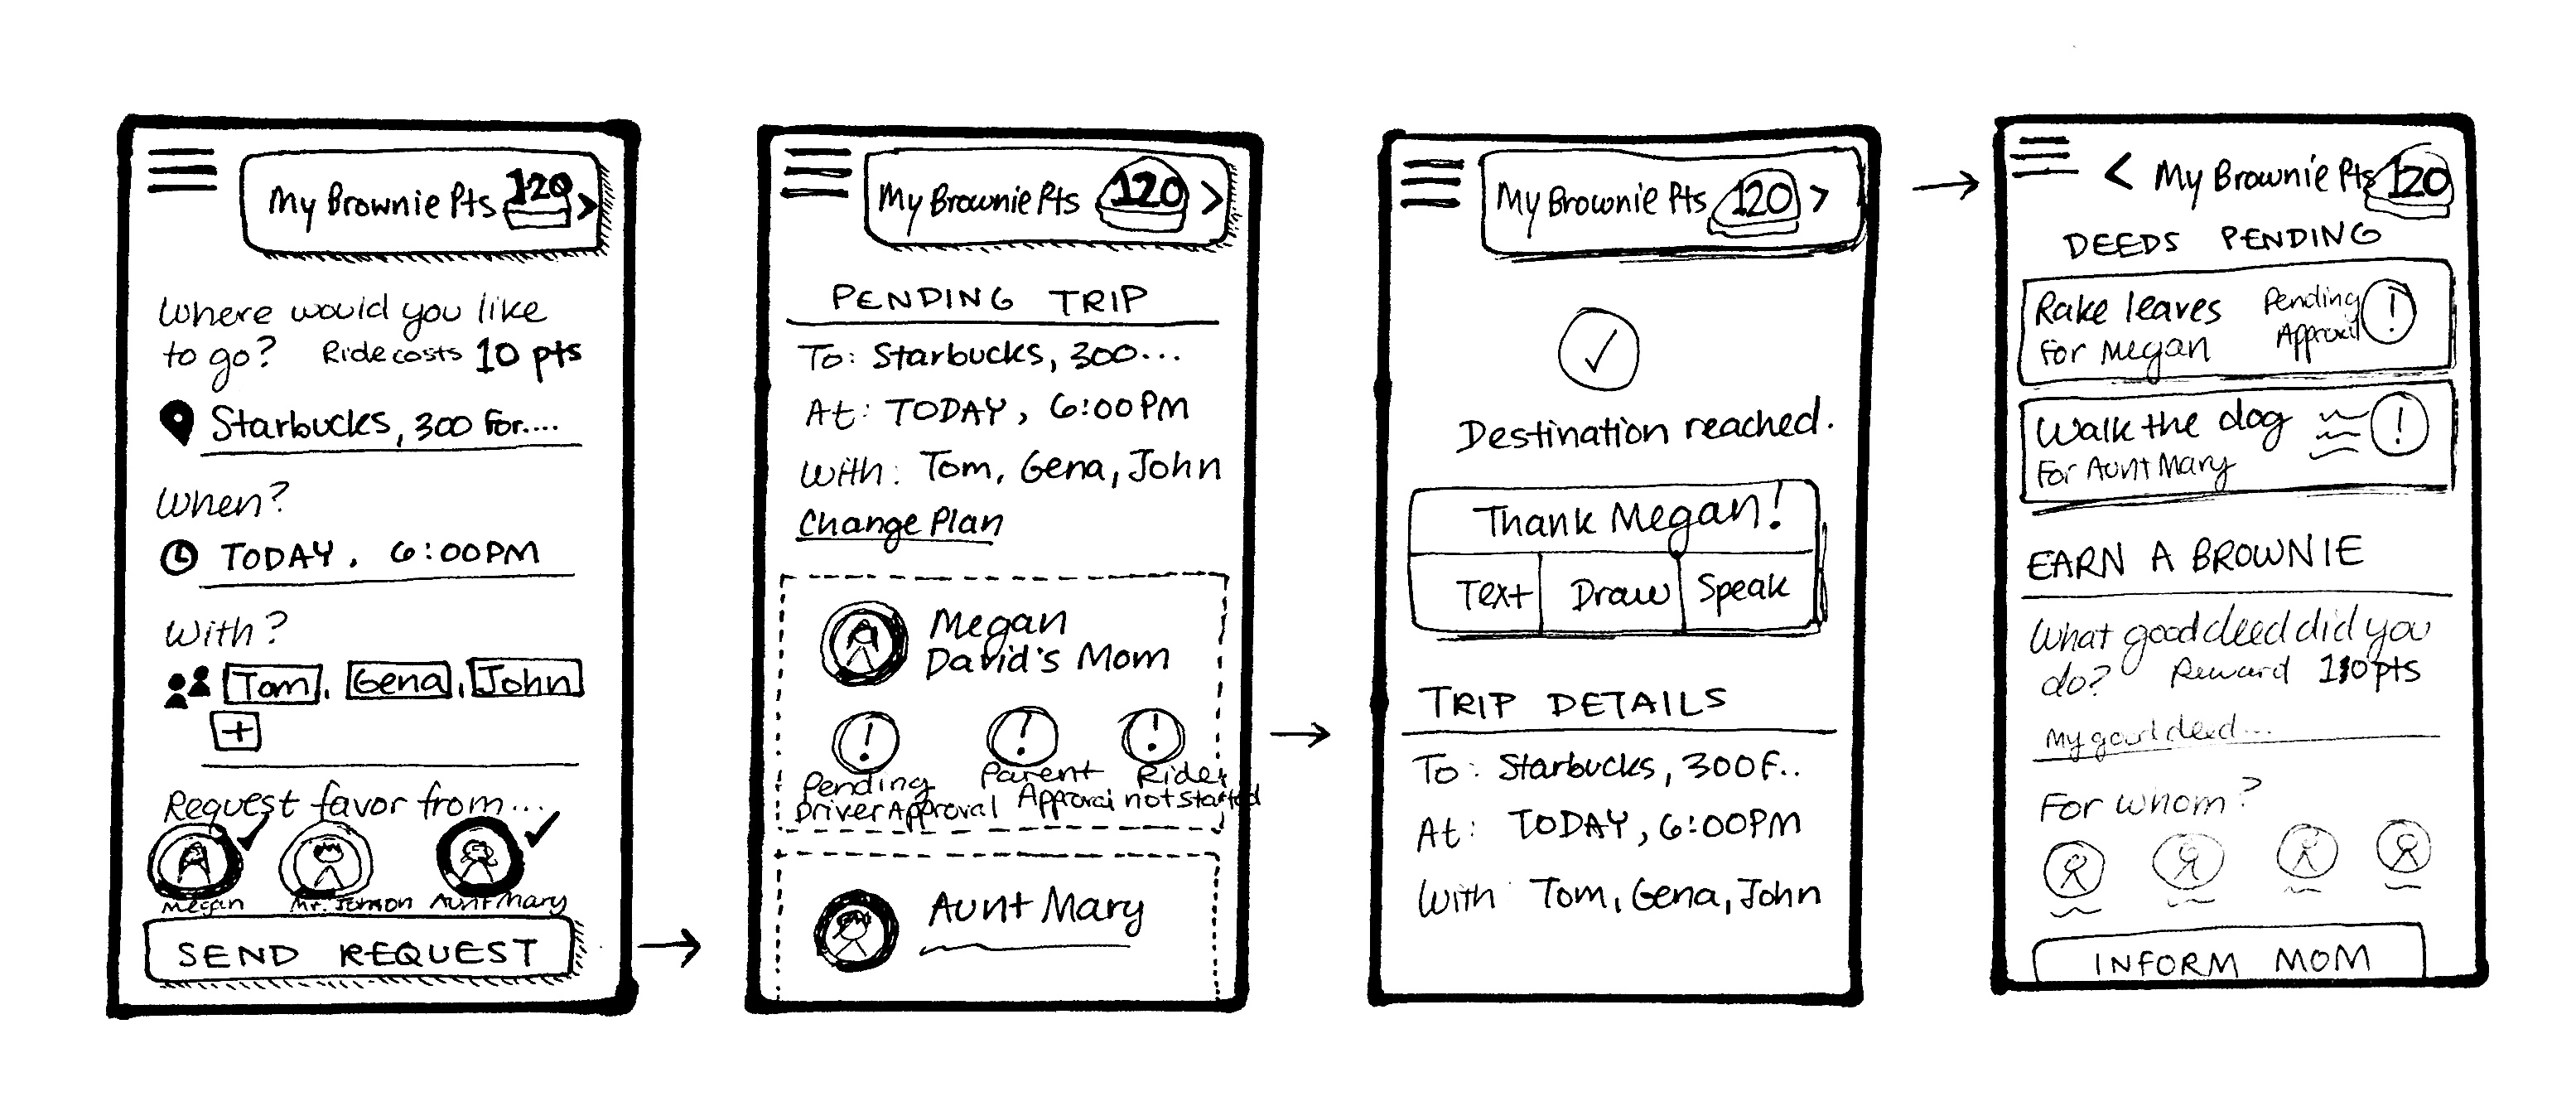 My Brownie Pts 120 >
Where would you like
to go? Ride costs 10 pts
Starbucks, 300 For....
When?
TODAY, 6:00PM
With?
Tom, Gena, John
+
Request favor from...
Megan Mr. Aunt Mary
SEND REQUEST
My Brownie Pts 120 >
PENDING TRIP
To: Starbucks, 300...
At: TODAY, 6:00PM
With: Tom, Gena, John
Change Plan
Megan
David's Mom
! ! !
Pending Parent Ride
Driver Approval not started
Aunt Mary
My Brownie Pts 120 >
Destination reached.
Thank Megan!
Text Draw Speak
TRIP DETAILS
To: Starbucks, 300 F..
At: TODAY, 6:00PM
With Tom, Gena, John
< My Brownie Pts 120
DEEDS PENDING
Rake leaves Pending !
For Megan Approval
Walk the dog !
For Aunt Mary
EARN A BROWNIE
What good deed did you
do? Reward pts
My good deed...
For whom?
INFORM MOM